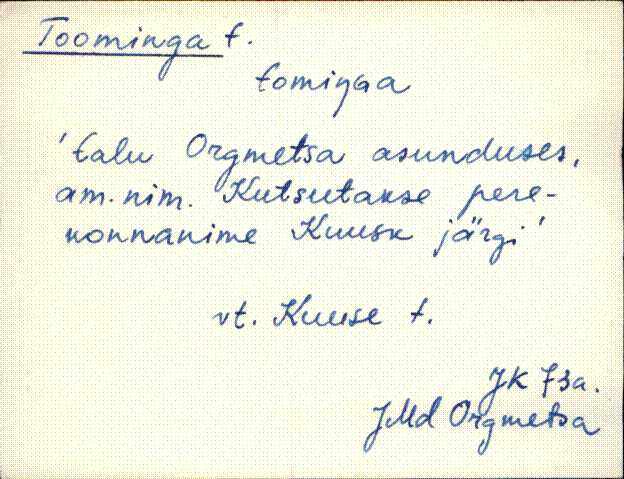 Toominga t.
tomiŋaa
'talu Orgmetsa asunduses,
am. nim. Kutsutakse pere-
konnanime Kuusk järgi'
vt. Kuuse t.
JK 73a.
JMd Orgmetsa